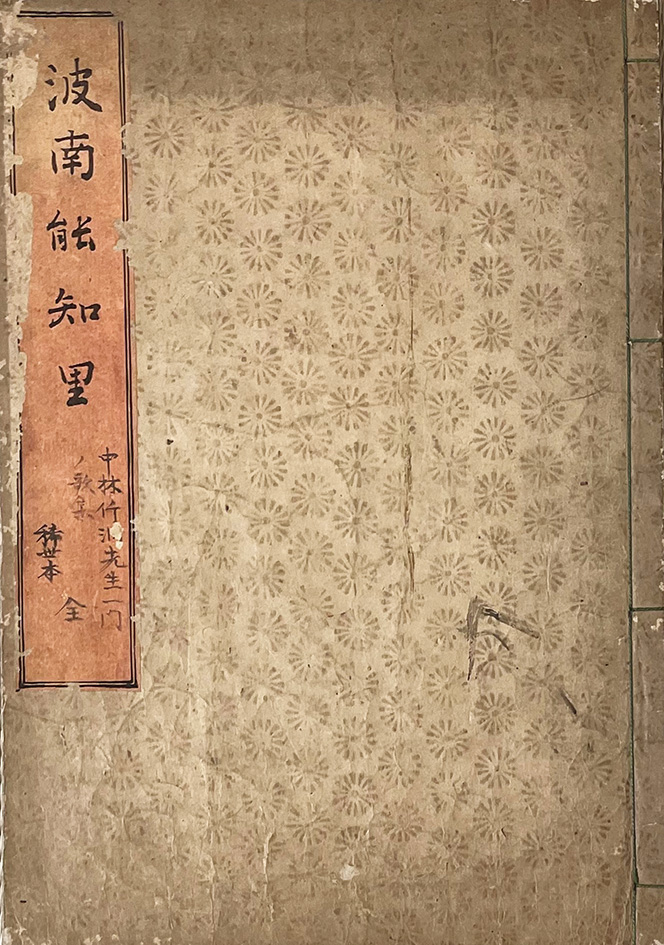 波南能知里
中林竹洞先生一門
ノ歌集
全
稀世本